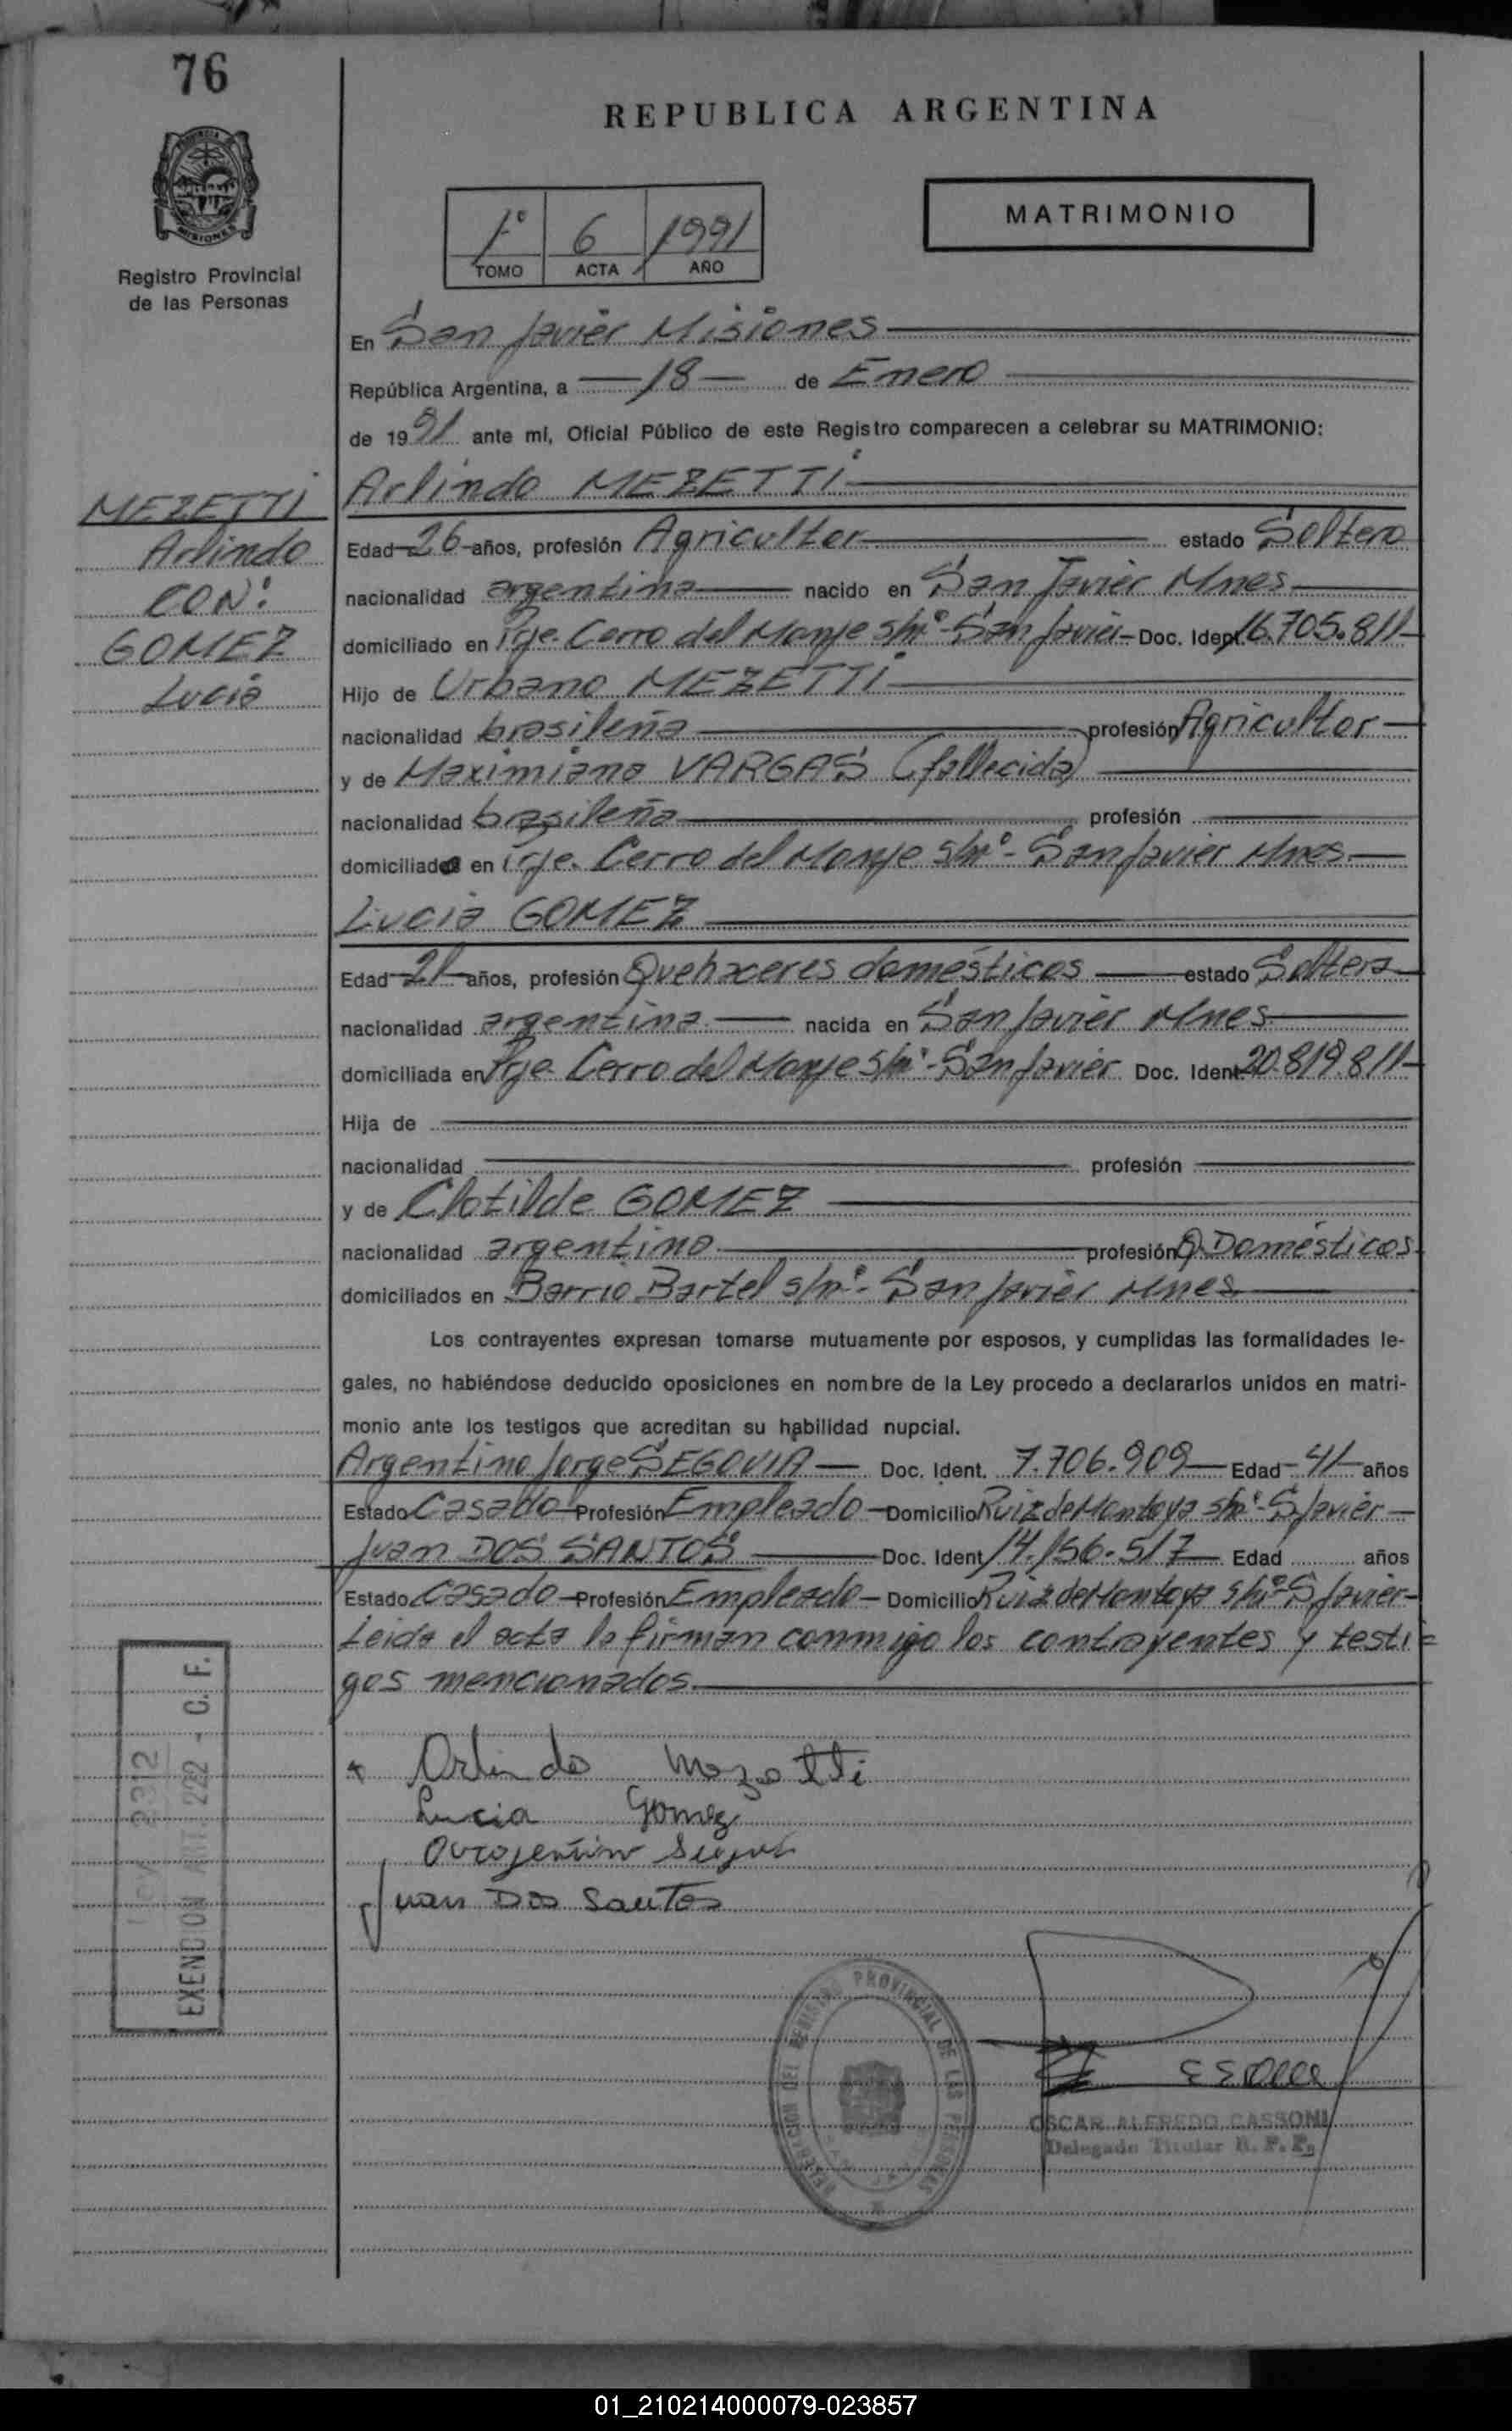 76
REPUBLICA ARGENTINA
MISIONES
Registro Provincial
de las Personas
1º 6 1991
TOMO ACTA AÑO
MATRIMONIO
En San Javier Misiones
República Argentina, a 18 de Enero
de 1991 ante mí, Oficial Público de este Registro comparecen a celebrar su MATRIMONIO:
MEZETTI
Arlindo
CON:
GOMEZ
Lucia
Arlindo MEZETTI
Edad 26 años, profesión Agricultor estado Soltero
nacionalidad argentina nacido en San Javier Mnes
domiciliado en Pje. Cerro del Monje s/nº - San Javier - Doc. Ident. 16.705.811
Hijo de Urbano MEZETTI
nacionalidad brasileña profesión Agricultor
y de Maximiana VARGAS (fallecida)
nacionalidad brasileña profesión
domiciliado en Pje. Cerro del Monje s/nº - San Javier Mnes
Lucia GOMEZ
Edad 21 años, profesión Quehaceres domésticos estado Soltera
nacionalidad argentina nacida en San Javier Mnes
domiciliada en Pje. Cerro del Monje s/nº - San Javier Doc. Ident. 20.819.811
Hija de
nacionalidad profesión
y de Clotilde GOMEZ
nacionalidad argentina profesión Q. Domésticos
domiciliados en Barrio Bartel s/nº - San Javier Mnes
Los contrayentes expresan tomarse mutuamente por esposos, y cumplidas las formalidades le-
gales, no habiéndose deducido oposiciones en nombre de la Ley procedo a declararlos unidos en matri-
monio ante los testigos que acreditan su habilidad nupcial.
Argentino Jorge SEGOVIA Doc. Ident. 7.706.909 Edad 41 años
Estado Casado Profesión Empleado Domicilio Ruiz de Montoya s/nº - S Javier
Juan DOS SANTOS Doc. Ident 14.156.517 Edad años
Estado Casado Profesión Empleado Domicilio Ruiz de Montoya s/nº - S Javier
Leida el acta la firman conmigo los contrayentes y testi=
gos mencionados.
Arlindo Mezetti
Lucia Gomez
Juan Dos Santos
LEY 2312
EXENCION ART. 222 - C. F.
DELEGACION DEL REGISTRO PROVINCIAL DE LAS PERSONAS
OSCAR ALFREDO CASSONI
Delegado Titular R. P. P.
01_210214000079-023857